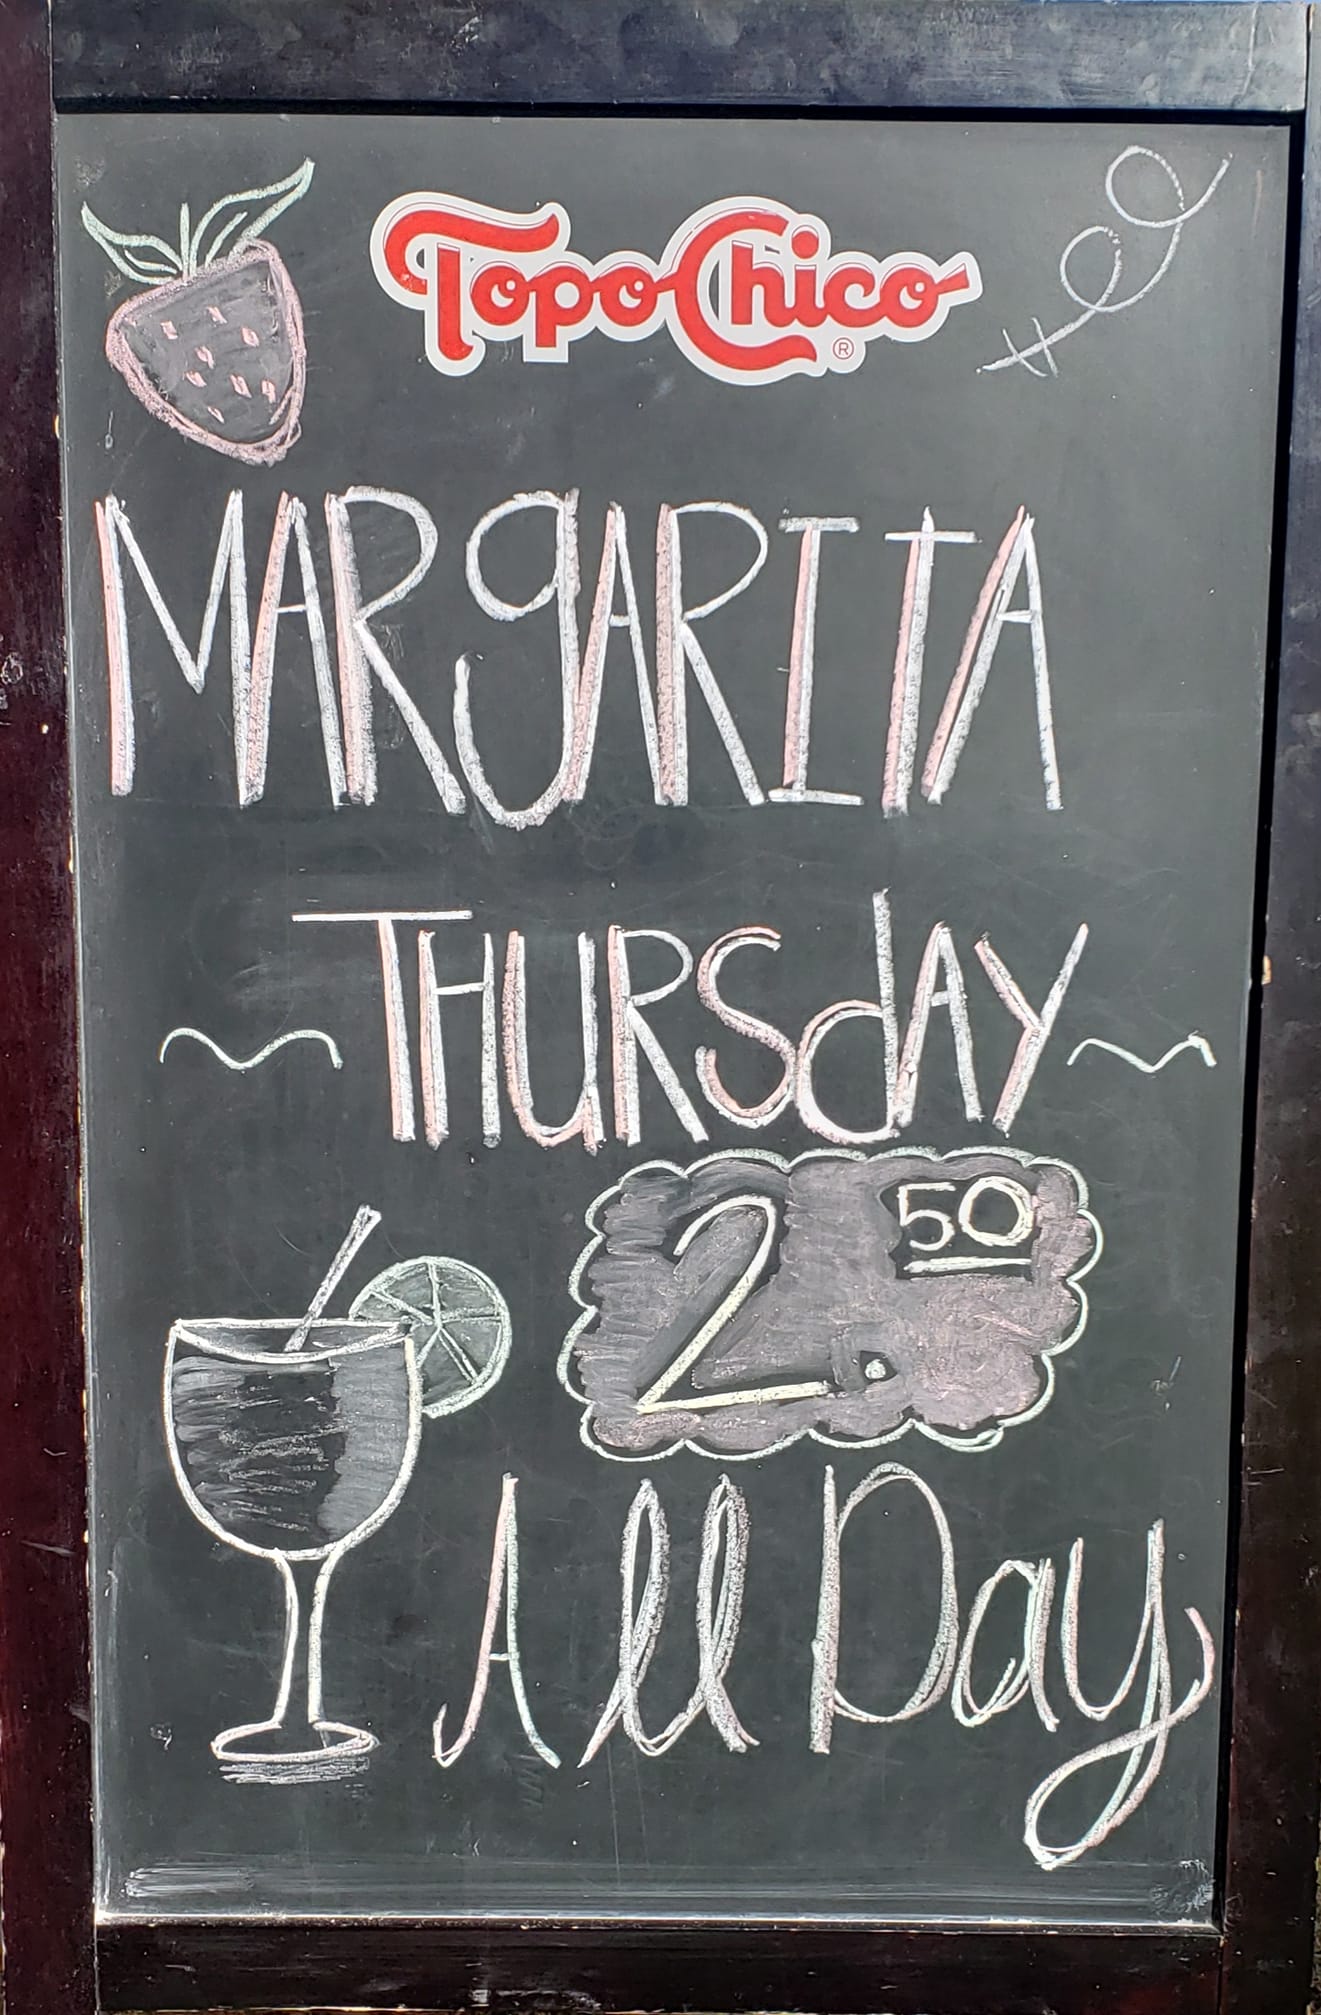 Topo Chico ®
MARgARITA
THURSdAY
2.50
All Day